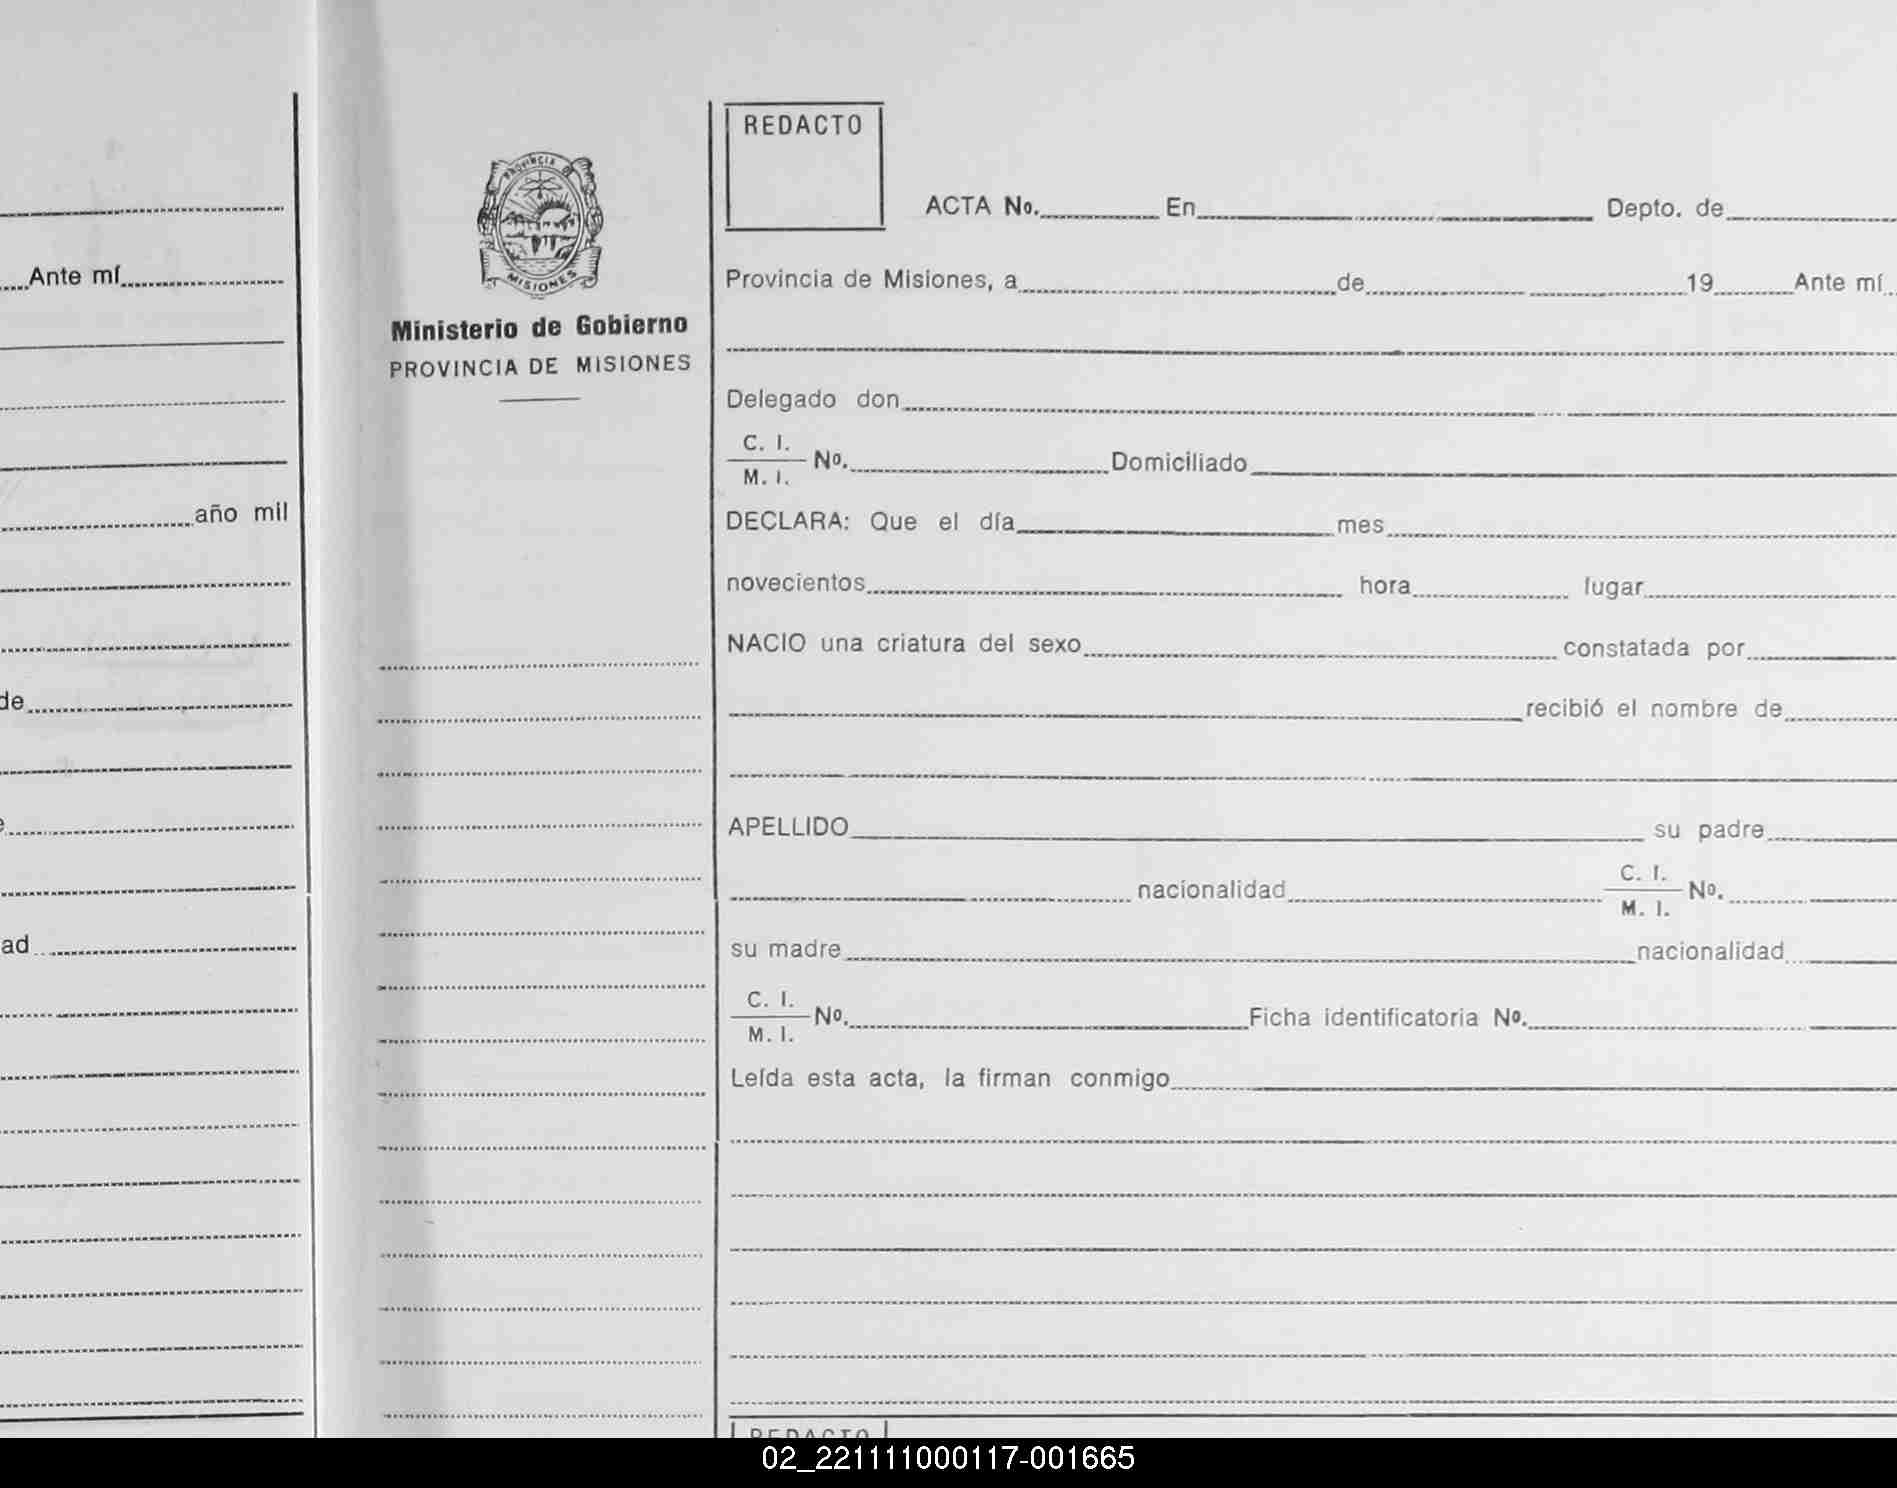 Ante mí
año mil
de
ad
PROVINCIA DE
MISIONES
Ministerio de Gobierno
PROVINCIA DE MISIONES
REDACTO
ACTA No. En Depto. de
Provincia de Misiones, a de 19 Ante mí
Delegado don
C. I.
M. I. Nº. Domiciliado
DECLARA: Que el día mes
novecientos hora lugar
NACIO una criatura del sexo constatada por
recibió el nombre de
APELLIDO su padre
nacionalidad C. I.
M. I. Nº.
su madre nacionalidad
C. I.
M. I. Nº. Ficha identificatoria Nº.
Leída esta acta, la firman conmigo
REDACTO
02_221111000117-001665